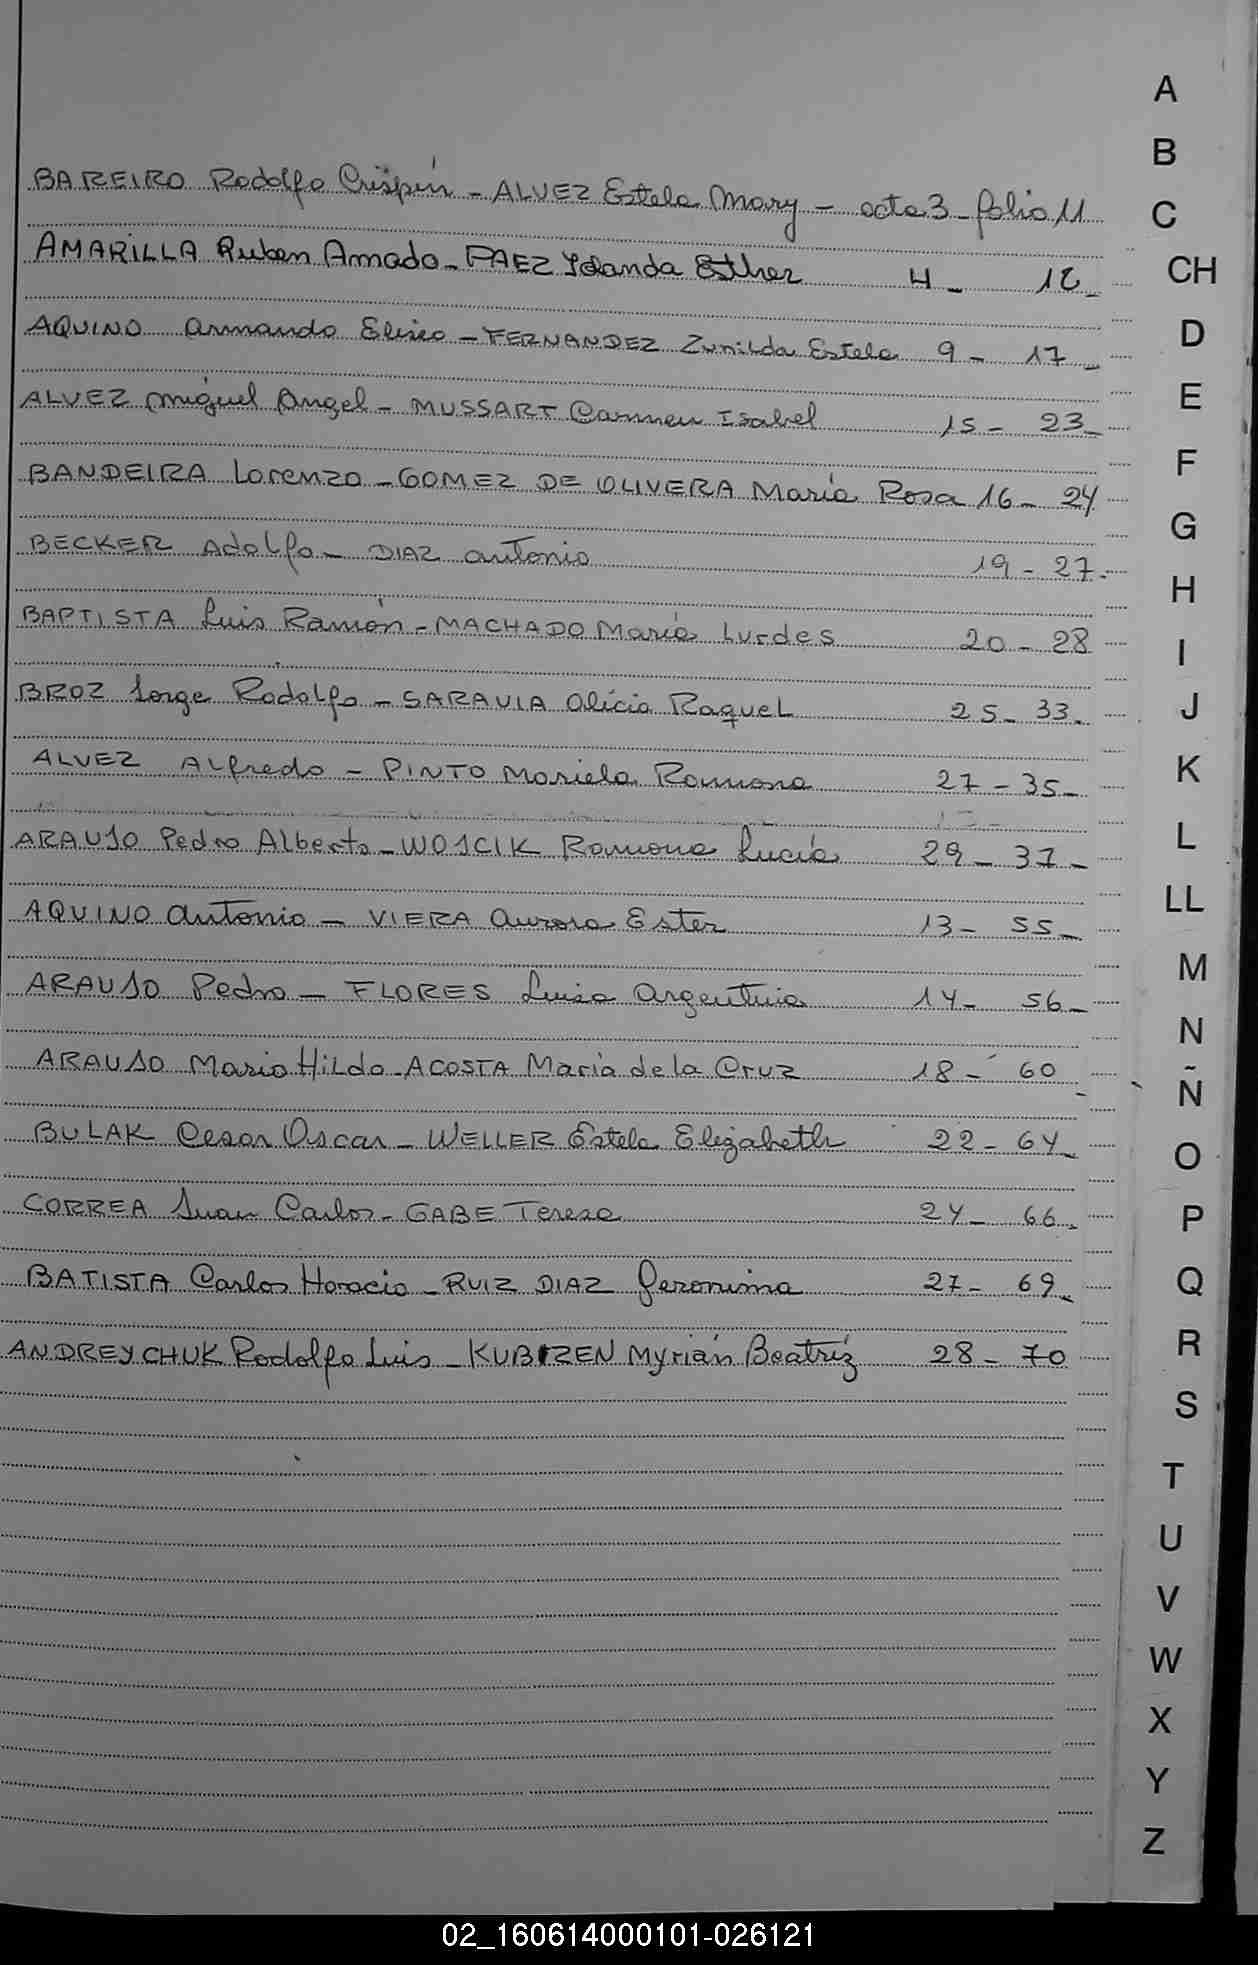 BAREIRO Rodolfo Crispín - ALVEZ Estela Mary - acta 3 - folio 11
AMARILLA Ruben Amado - PAEZ Yolanda Esther 4 - 12 -
AQUINO Armando Eliseo - FERNANDEZ Zunilda Estela 9 - 17 -
ALVEZ Miguel Angel - MUSSART Carmen Isabel 15 - 23 -
BANDEIRA Lorenzo - GOMEZ DE OLIVERA María Rosa 16 - 24
BECKER Adolfo - DIAZ Antonio 19 - 27 -
BAPTISTA Luis Ramón - MACHADO María Lurdes 20 - 28
BROZ Jorge Rodolfo - SARAVIA Alicia Raquel 25 - 33 -
ALVEZ Alfredo - PINTO Mariela Ramona 27 - 35 -
ARAUJO Pedro Alberto - WOJCIK Ramona Lucía 29 - 37 -
AQUINO Antonio - VIERA Aurora Ester 13 - 55 -
ARAUJO Pedro - FLORES Luisa Argentina 14 - 56 -
ARAUJO Mario Hildo - ACOSTA María de la Cruz 18 - 60
BULAK Cesar Oscar - WELLER Estela Elizabeth 22 - 64 -
CORREA Juan Carlos - GABE Teresa 24 - 66 -
BATISTA Carlos Horacio - RUIZ DIAZ Geronima 27 - 69 -
ANDREYCHUK Rodolfo Luis - KUBIZEN Myrián Beatríz 28 - 70
A
B
C
CH
D
E
F
G
H
I
J
K
L
LL
M
N
Ñ
O
P
Q
R
S
T
U
V
W
X
Y
Z
02_160614000101-026121